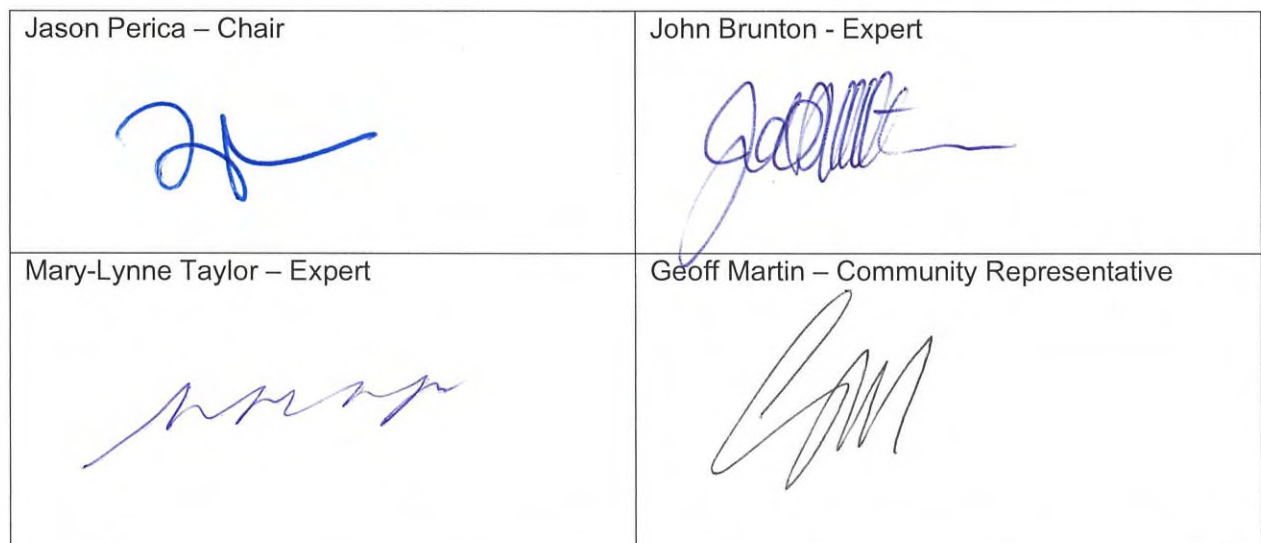 Jason Perica – Chair
John Brunton - Expert
Mary-Lynne Taylor – Expert
Geoff Martin – Community Representative